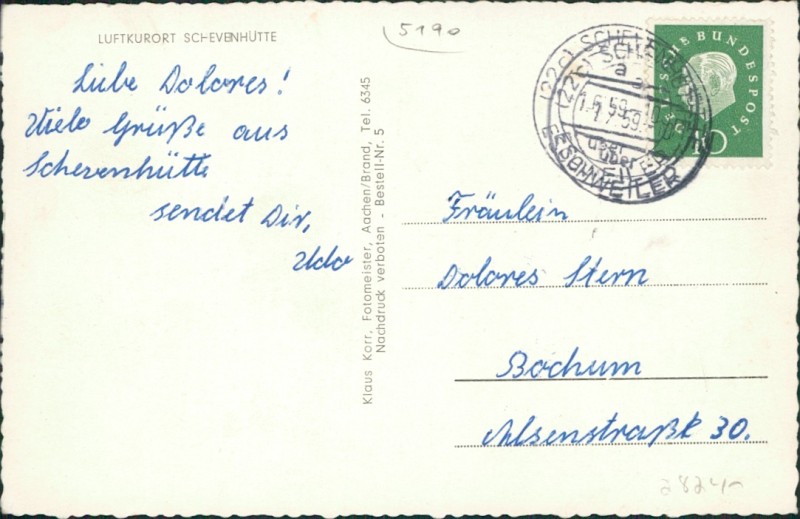 LUFTKURORT SCHEVENHÜTTE
Liebe Dolores!
Viele Grüße aus
Schevenhütte
sendet Dir,
Udo
Klaus Korr, Fotomeister, Aachen/Brand, Tel. 6345
Nachdruck verboten - Bestell-Nr. 5
5190
DEUTSCHE BUNDESPOST
10
(22c)
über
ESCHWEILER
Fräulein
Dolores Stern
Bochum
Alsenstraße 30.